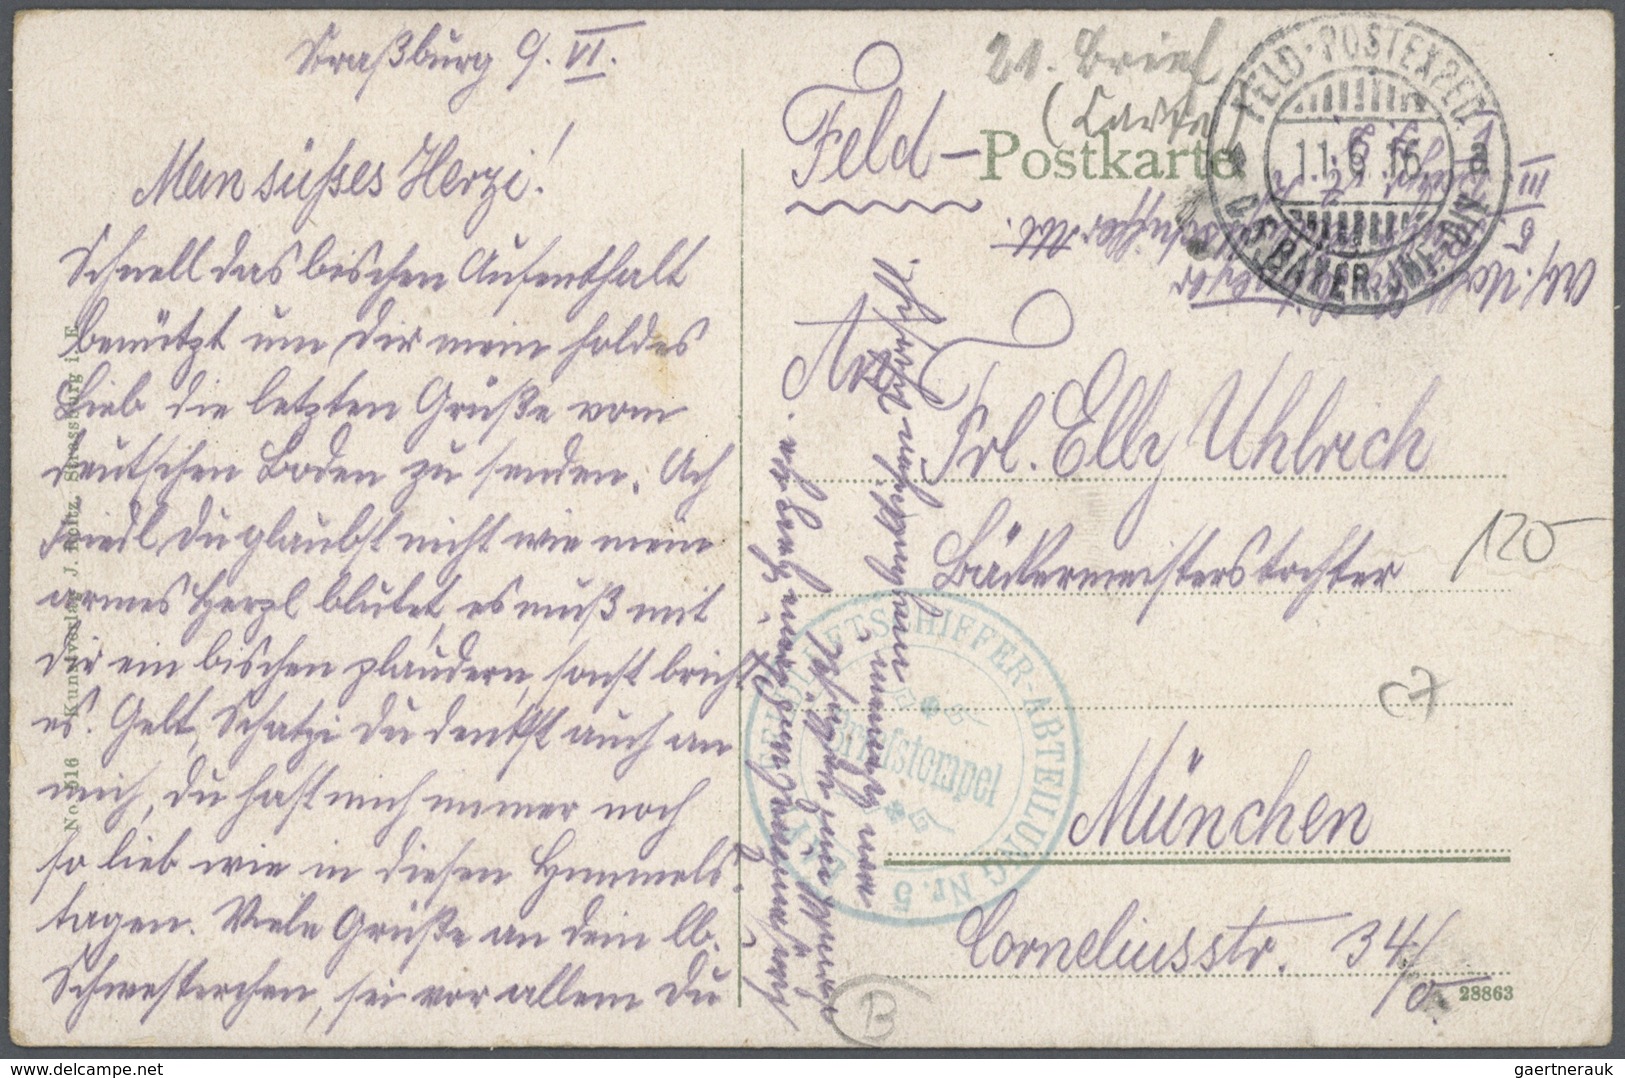 Straßburg 9. VI.
Mein süßes Herzi!
Schnell das bischen Aufenthalt
benützt um Dir mein holdes
Lieb die letzten Grüße vom
deutschen Boden zu senden. Ach
Friedl Du glaubst nicht wie mein
armes Herzl blutet, es muß mit
dir ein bischen plaudern, sonst bricht
es. Gelt, Schatzi Du denkst auch an
mich, Du hast mich immer noch
so lieb wie in diesen Himmels-
tagen. Viele Grüße an dein lb.
Schwesterchen, sei vor allem Du
No. 516 Kunstverlag J. Rottz, Strassburg i. E.
21. Brief
(Karte
Feld-
Postkarte
FELD-POSTEXPED.
11.6.16
BAYER. INF. DIV.
Frl. Elly Uhlrich
Bäckermeisterstochter
München
Corneliusstr. 34/
FELDLUFTSCHIFFER-ABTEILUNG Nr. 5
Briefstempel
120
B
28863
delcampe.net
gaertnerauk